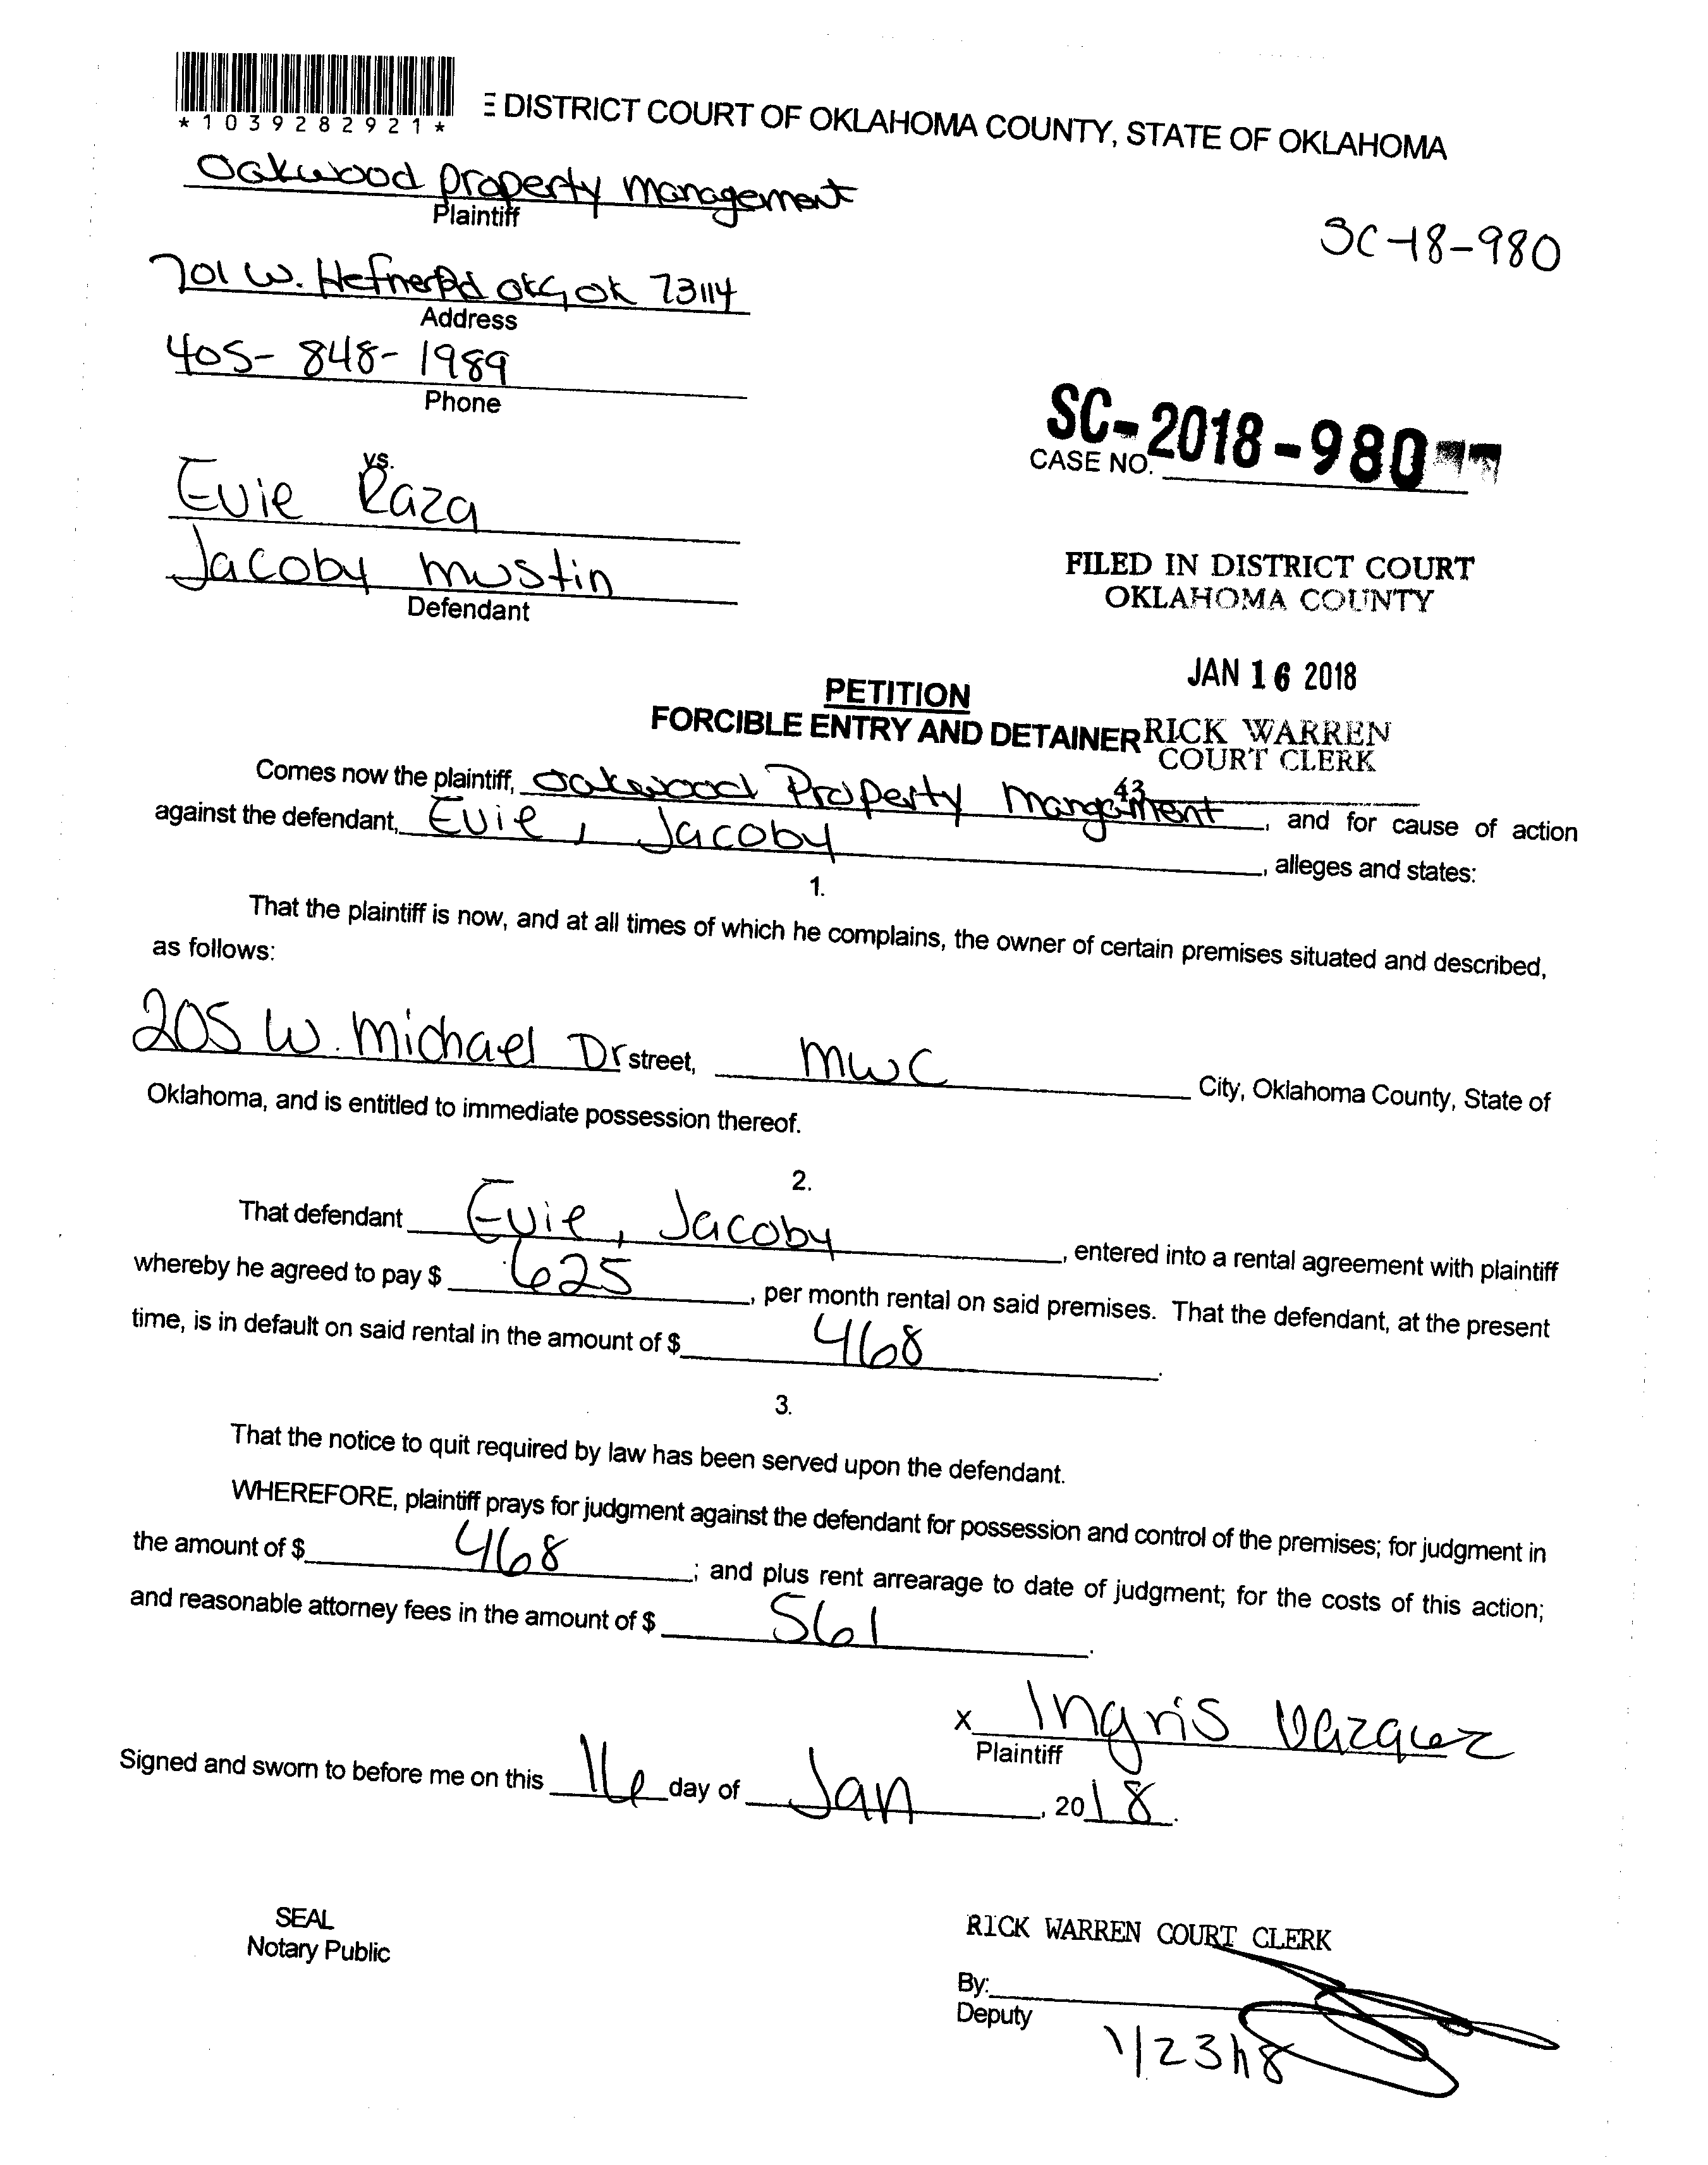 *1039282921*
E DISTRICT COURT OF OKLAHOMA COUNTY, STATE OF OKLAHOMA
Oakwood property management
Plaintiff
SC-18-980
701 W. Hefner Rd OKC, OK 73114
Address
405-848-1989
Phone
SC-2018-980
CASE NO.
vs.
Evie Raza
Jacoby Mustin
Defendant
FILED IN DISTRICT COURT
OKLAHOMA COUNTY
JAN 16 2018
PETITION
FORCIBLE ENTRY AND DETAINER
RICK WARREN
COURT CLERK
43
Comes now the plaintiff, Oakwood Property Mangament, and for cause of action
against the defendant, Evie, Jacoby, alleges and states:
1.
That the plaintiff is now, and at all times of which he complains, the owner of certain premises situated and described,
as follows:
205 W. Michael Dr street, MWC City, Oklahoma County, State of
Oklahoma, and is entitled to immediate possession thereof.
2.
That defendant Evie, Jacoby, entered into a rental agreement with plaintiff
whereby he agreed to pay $ 625, per month rental on said premises. That the defendant, at the present
time, is in default on said rental in the amount of $ 468.
3.
That the notice to quit required by law has been served upon the defendant.
WHEREFORE, plaintiff prays for judgment against the defendant for possession and control of the premises; for judgment in
the amount of $ 468; and plus rent arrearage to date of judgment; for the costs of this action;
and reasonable attorney fees in the amount of $ 561.
x Ingris Vazquez
Plaintiff
Signed and sworn to before me on this 16 day of Jan, 2018.
SEAL
Notary Public
RICK WARREN COURT CLERK
By:
Deputy
1/23/18